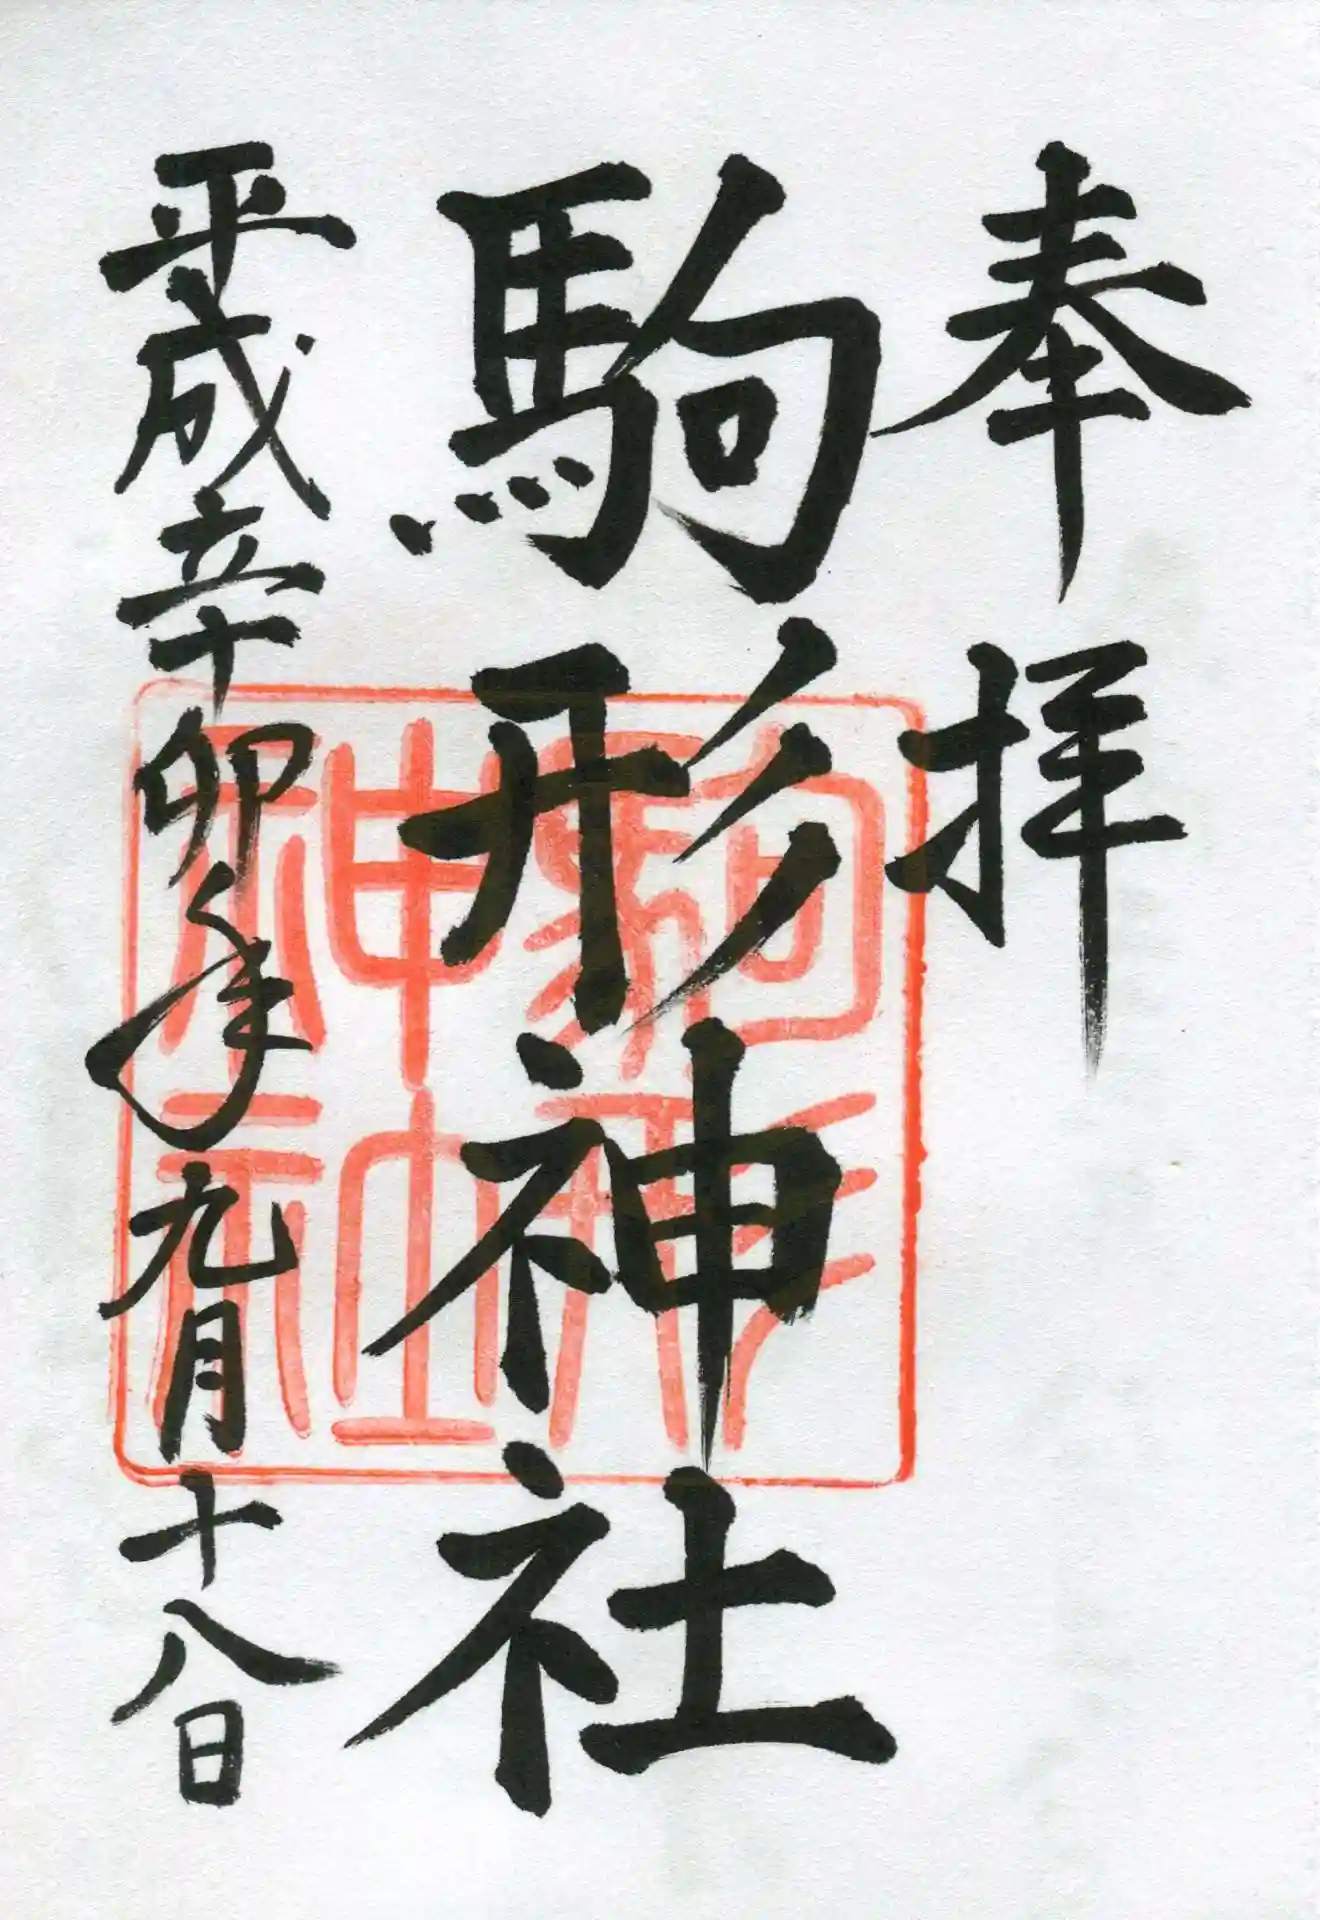 奉拝
駒形神社
平成辛卯年九月十八日
駒形神社